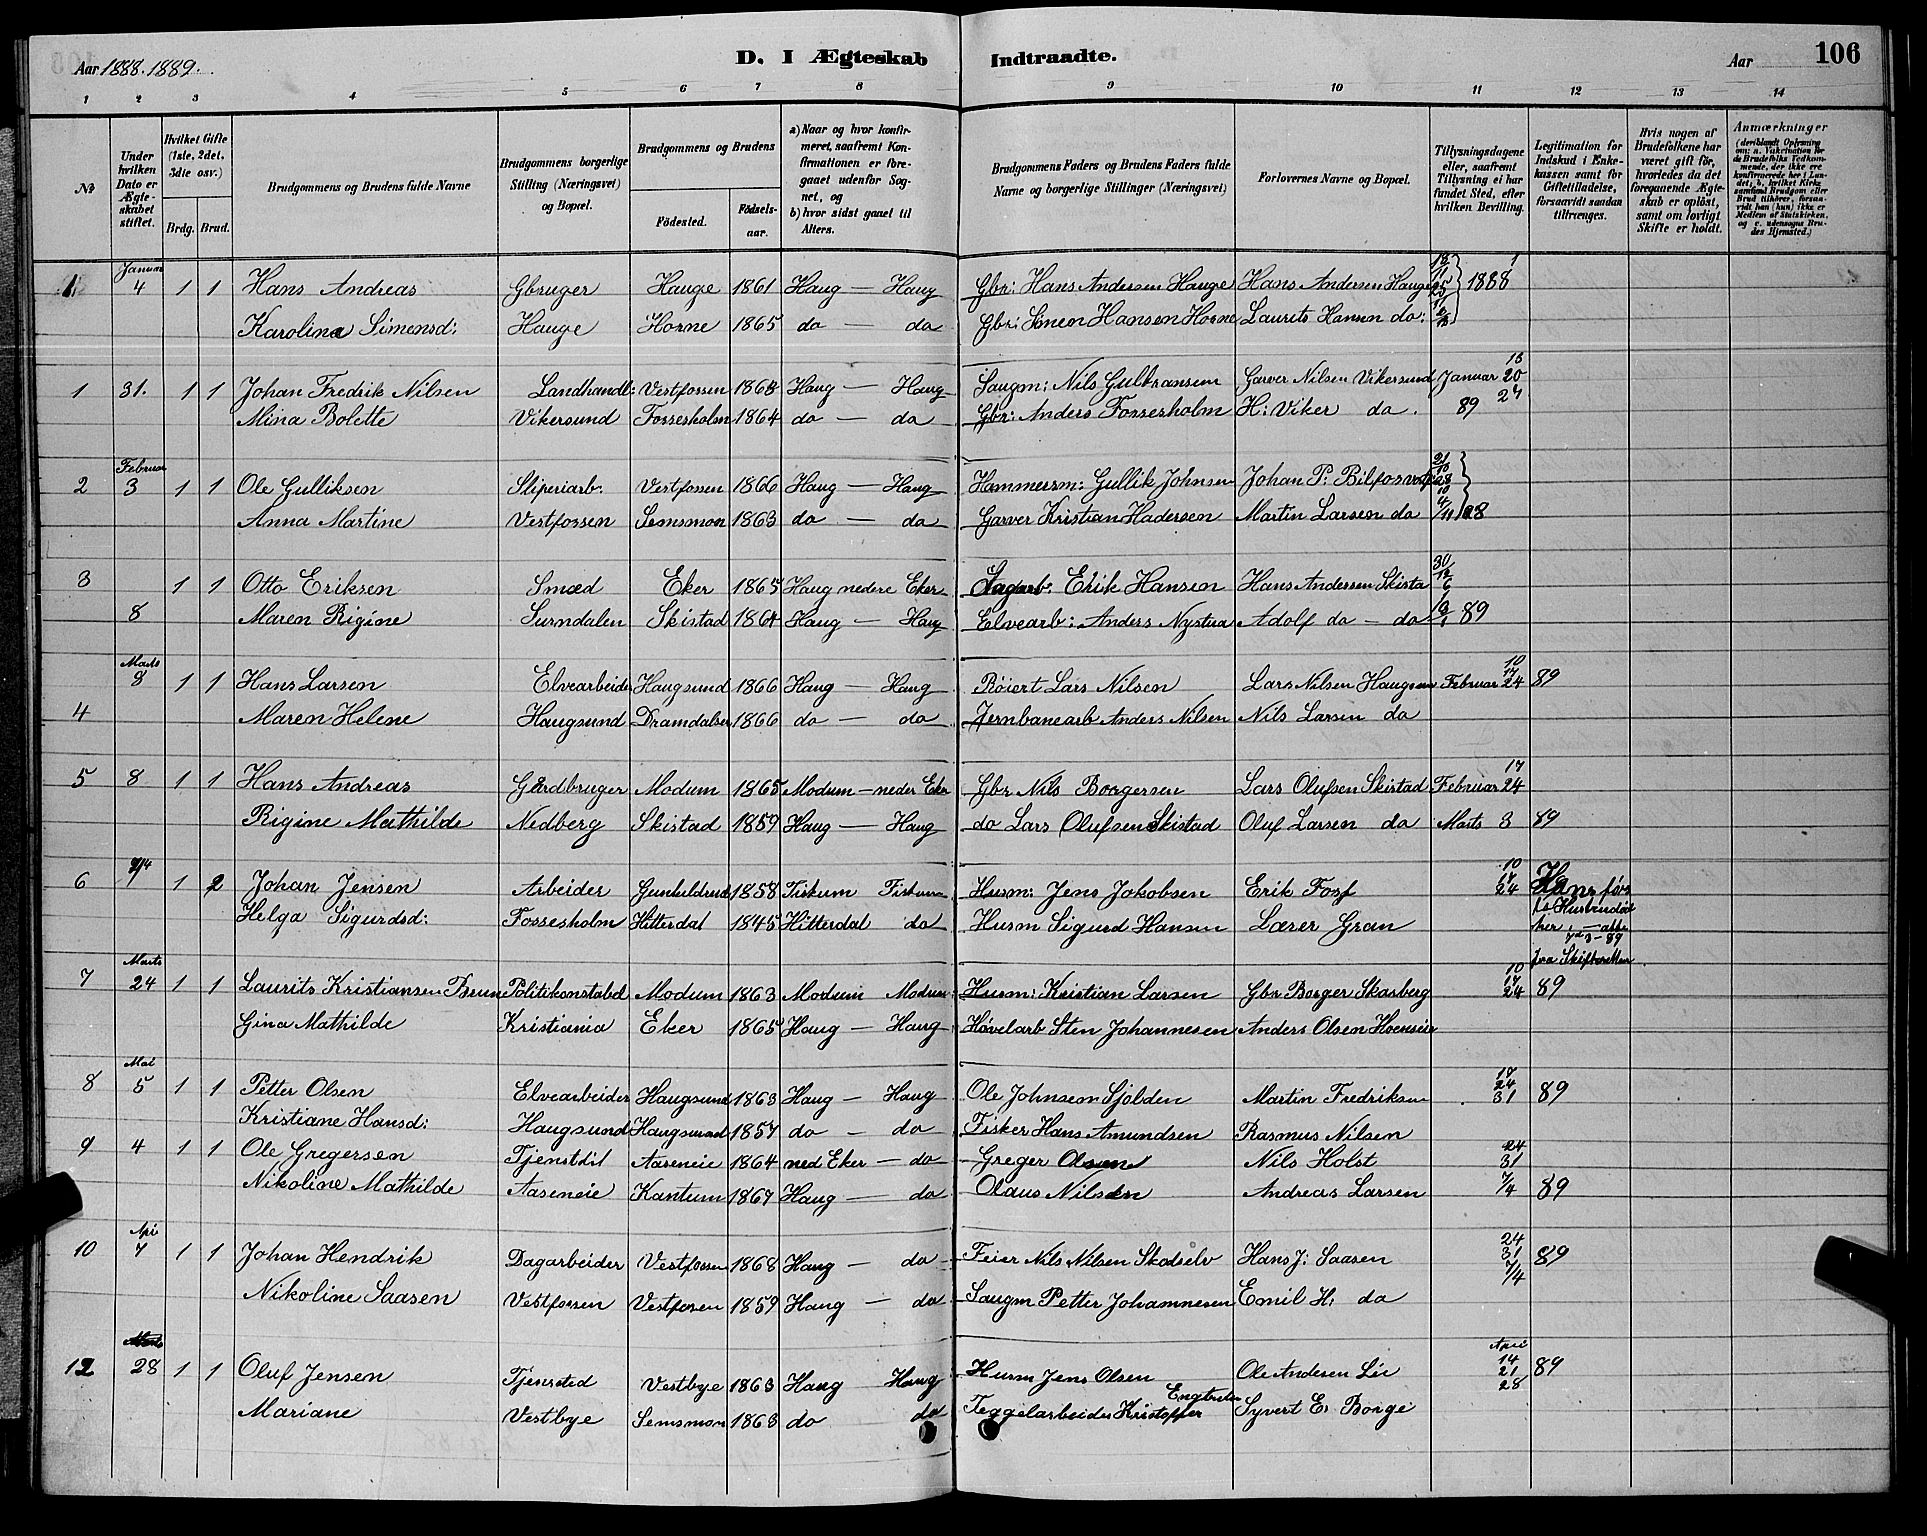 Aar 1888. 1889.
D. I Ægteskab Indtraadte.
Aar
106
1 2 3 4 5 6 7 8 9 10 11 12 13 14
№
Under hvilken Dato er Ægteskabet stiftet.
Hvilket Gifte (1ste, 2det, 3die osv.)
Brdg. Brud.
Brudgommens og Brudens fulde Navne
Brudgommens borgerlige Stilling (Næringsvei) og Bopæl.
Brudgommens og Brudens
Fødested.
Fødselsaar.
a) Naar og hvor konfirmeret, saafremt Konfirmationen er foregaaet udenfor Sognet, og
b) hvor sidst gaaet til Alters.
Brudgommens Faders og Brudens Faders fulde Navne og borgerlige Stillinger (Næringsvei)
Forlovernes Navne og Bopæl.
Tillysningsdagene eller, saafremt Tillysning ei har fundet Sted, efter hvilken Bevilling.
Legitimation for Indskud i Enkekassen samt for Giftetilladelse, forsaavidt saadan tiltrænges.
Hvis nogen af Brudefolkene har været gift før, hvorledes da det foregaaende Ægteskab er opløst, samt om lovligt Skifte er holdt.
Anmærkninger (deriblandt Oplysning om: a. Vakcination for de Brudefolks Vedkommende, der ikke ere konfirmerede her i Landet; b. hvilket Kirkesamfund Brudgom eller Brud tilhører, forsaavidt han (hun) ikke er Medlem af Statskirken, og c. udensogns Brudes Hjemsted.)
1. Januar 4 1 1 Hans Andreas Gbruger Hauge 1861 Haug — Haug Gbr: Hans Andersen Hauge Hans Andersen Hauge 1888
Karoline Simensd: Hauge Horne 1865 do — do Gbr: Simen Hansen Horne Laurits Hansen do:
1 31. 1 1 Johan Fredrik Nilsen Landhandl: Vestfossen 1868 Haug — Haug Saugm: Nils Gulbransen Garver Nilsen Vikersund Januar 20 27
Mina Bolette Vikersund Fossesholm 1864 do — do Gbr: Anders Fossesholm H: Viker do. 89
2 Februar 3 1 1 Ole Gulliksen Sliperiarb. Vestfossen 1866 Haug — Haug Hammersm: Gullik Johnsen Johan P.
Anna Martine Vestfossen Semsmoen 1863 do — do Garver Kristian Hadersen Martin Larsen do 4/11 88
3 1 1 Otto Eriksen Smed Eker 1865 Haug nedere Eker Erik Hansen Hans Andersen Skista 30/12 6
8 Maren Rigine Surndalen Skistad 1864 Haug — Haug Elvearb: Anders Nystua Adolf do — do 89
Marts 8 1 1 Hans Larsen Elvearbeider Haugsund 1866 Haug — Haug Røiert Lars Nilsen Lars Nilsen Haugsun Februar 10 17 24 89
4 Maren Helene Haugsund Dramdalsei 1866 do — do Jernbanearb Anders Nilsen Nils Larsen do
5 8 1 1 Hans Andreas Gårdbruger Modum 1865 Modum — neder Eker Gbr Nils Borgersen Lars Olufsen Skistad Februar 17 24
Rigine Mathilde Nedberg Skistad 1859 Haug — Haug do Lars Olufsen Skistad Oluf Larsen do Marts 3 89
6 1 2 Johan Jensen Arbeider Gunhildrud 1858 Fiskum Fiskum Husm: Jens Jokobsen Erik Forf 10 17 24 Hans førs
Helga Sigurdsd: Fossesholm Hitterdal 1845 Hitterdal do Husm Sigurd Hansen Lærer Gran
fra Skifteretten
7 Marts 24 1 1 Laurits Kristiansen Brun Politikonstabel Modum 1863 Modum Modum Husm: Kristian Larsen Gbr Borger Skarberg 10 17 24 89
Gina Mathilde Kristiania Eker 1865 Haug — Haug Høvelarb Sten Johannesen Anders Olsen Hoenseie
8 Mai 5 1 1 Petter Olsen Elvearbeider Haugsund 1863 Haug — Haug Ole Johnsen Sjolden Martin Fredriksen 17 24 31 89
Kristiane Hansd: Haugsund Haugsund 1857 do — do Fisker Hans Amundsen Rasmus Nilsen
9 4 1 1 Ole Gregersen Tjenstdit Aaseneie 1864 ned Eker — do Greger Olsen Nils Holst 24 31
Nikoline Mathilde Aaseneie Kantum 1867 Haug — do Olaus Nilsen Andreas Larsen 7/4 89
10 Apr 7 1 1 Johan Hendrik Dagarbeider Vestfossen 1868 Haug — do Feier Nils Nilsen Skotselv Hans J: Saasen 24 31 7/4 89
Nikoline Saasen Vestfossen Vestfossen 1859 Haug — do Saugm Petter Johannesen Emil H: do
12 Marts 28 1 1 Oluf Jensen Tjensted Vestbye 1863 Haug Haug Husm Jens Olsen Ole Andersen Lie April 14 21 28 89
Mariane Vestbye Semsmoen 1863 do do Teggelarbeider Kristoffer Engbretsen Syvert E. Borge